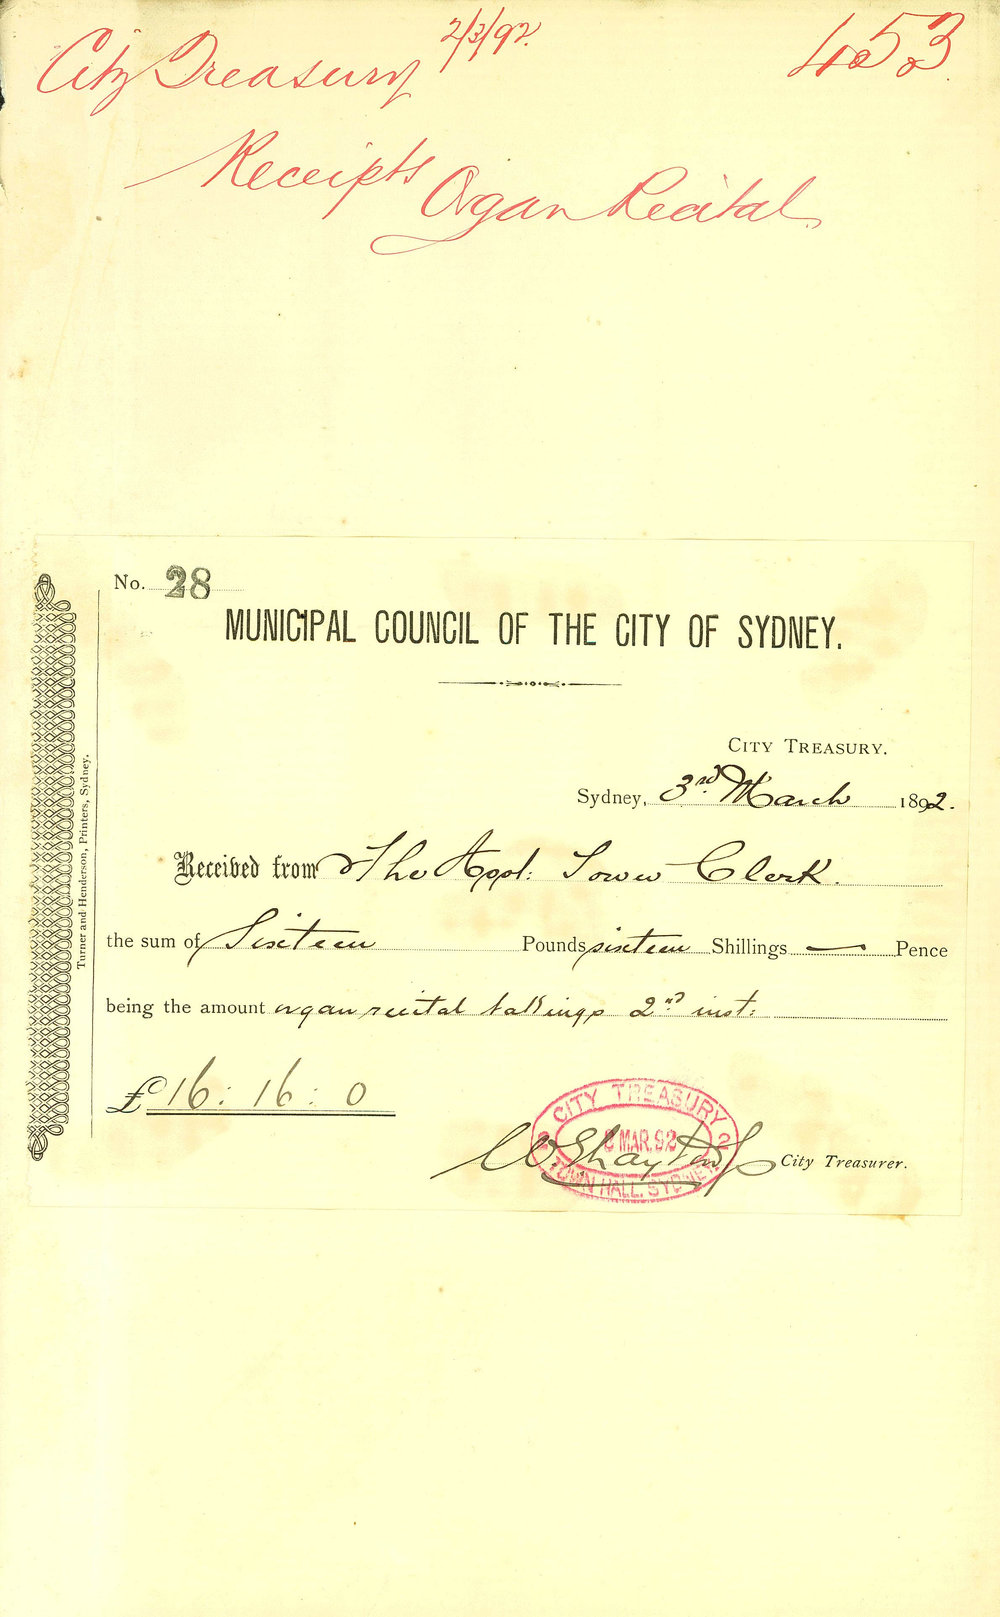 2/3/92.
City Treasury
453
Receipts Organ Recital
No. 28
MUNICIPAL COUNCIL OF THE CITY OF SYDNEY.
CITY TREASURY.
Sydney, 3rd March 1892.
Received from The Town Clerk.
the sum of Sixteen Pounds sixteen Shillings — Pence
being the amount organ recital takings 2nd inst:
£16: 16: 0
CITY TREASURY
MAR. 92
TOWN HALL. SYDNEY
City Treasurer.
Turner and Henderson, Printers, Sydney.